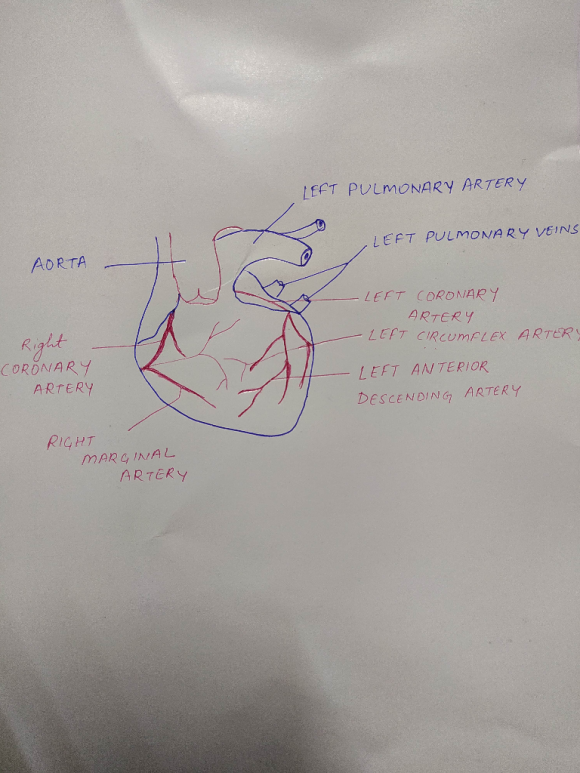 LEFT PULMONARY ARTERY
LEFT PULMONARY VEINS
AORTA
LEFT CORONARY
ARTERY
LEFT CIRCUMFLEX ARTERY
Right
CORONARY
ARTERY
LEFT ANTERIOR
DESCENDING ARTERY
RIGHT
MARGINAL
ARTERY